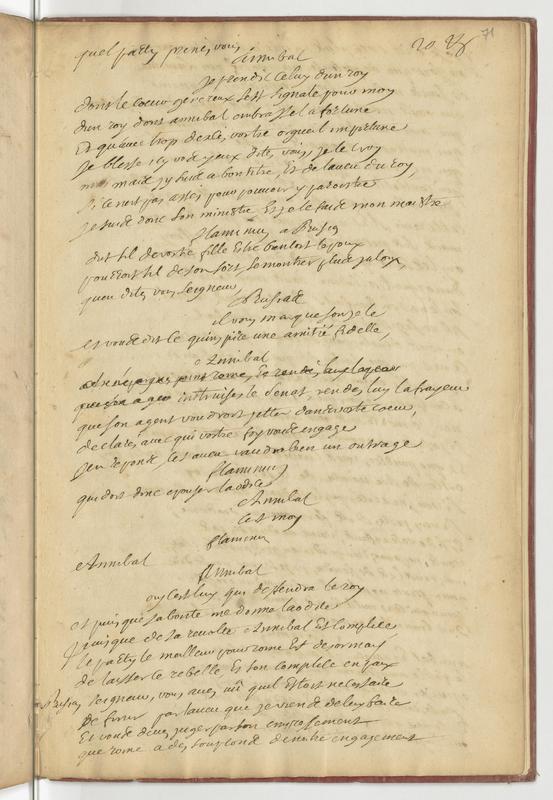 quel party prenez vous
20
71
annibal
Je prends celuy d'un roy
dont le coeur genereux s'est signalé pour moy
d'un roy dont annibal embrasse la fortune
et qu'avec trop d'excés vostre orgueil importune
Je blesse icy vos yeux dites vous, je le croy
mais j'y suis a bon titre, et de l'aveu du roy,
si ce n'est pas assés pour pouvoir y paroistre
Je suis donc son ministre et je le fais mon maistre
flaminius a Prusias
dust il de vostre fille estre bientost l'epoux
pourroit il de son sort se montrer plus jaloux,
qu'en dites vous seigneur
Prusias
il vous marque son zele
et vous dit ce qu'inspire une amitié fidelle,
Annibal
instruisez le senat, rendez luy la frayeur
que son agent voudroit jetter dans vostre coeur,
declarez avec qui vostre foy vous engage
j'en reponds cet aveu vaudra bien un outrage
flaminius
qui doit donc epouser laodice
Annibal
c'est moy
flaminius
Annibal
Annibal
ouy c'est luy qui deffendra le roy
et puisque sa bonté me donne laodice
puisque de sa revolte Annibal est complice,
le party le meilleur pour rome est desormais
de laisser le rebelle et son complice en paix
a Prusias seigneur, vous avez vû qu'il estoit necessaire
de finir par l'aveu que je viens de luy faire
et vous devez juger par son empressement
que rome a des soupçons de nostre engagement